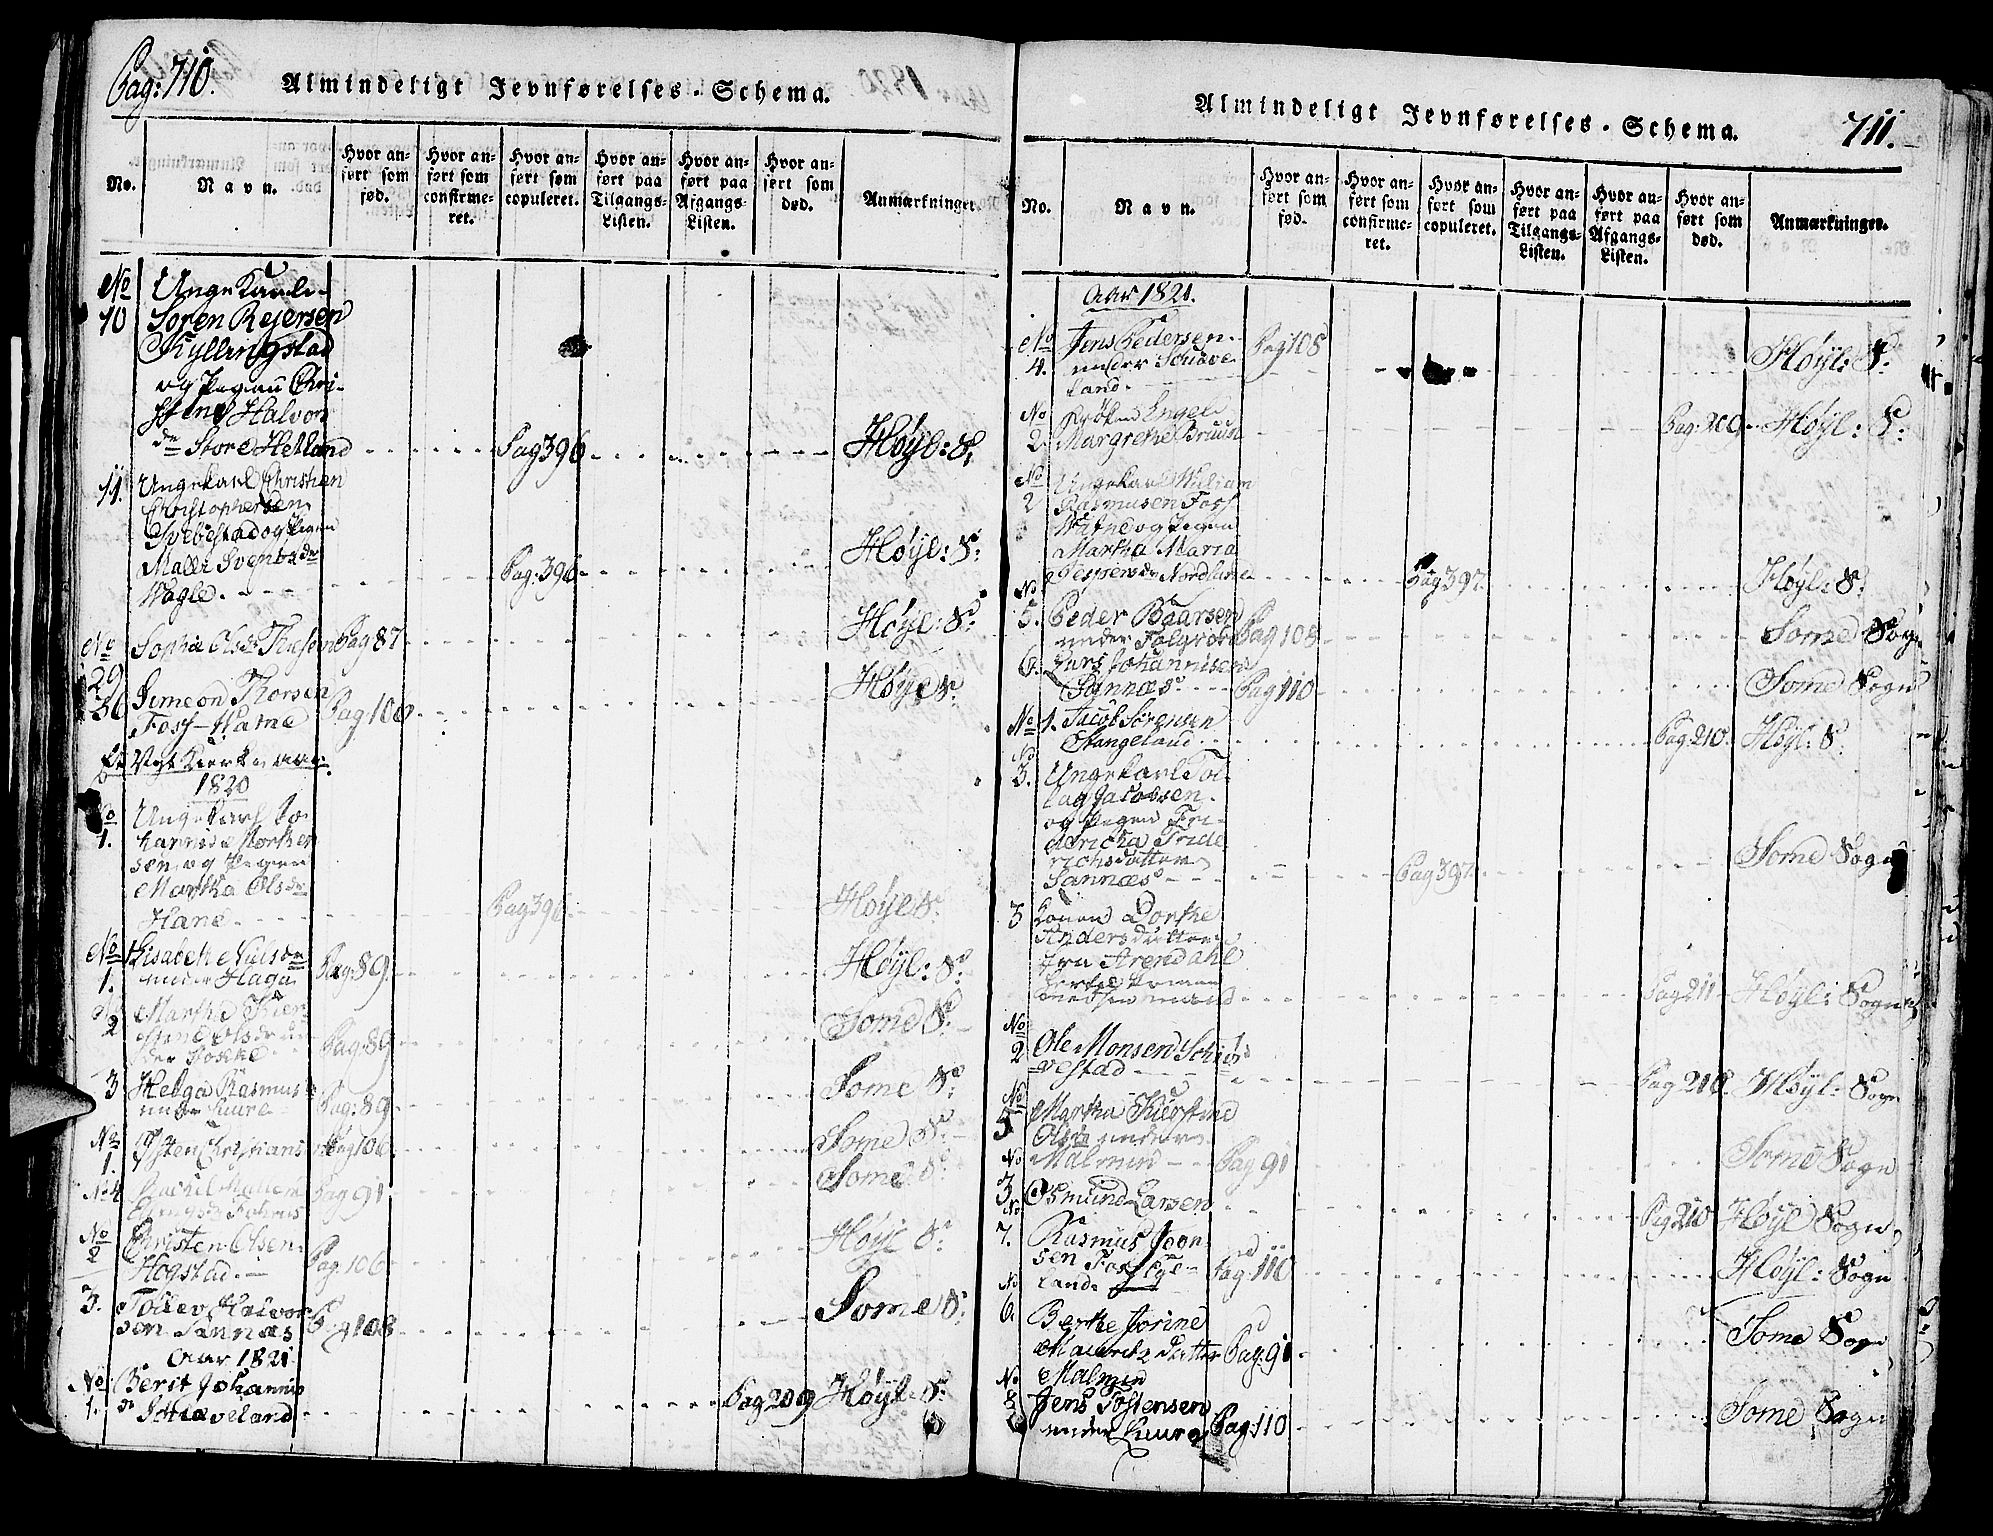 Pag: 710.
Almindeligt Jevnførelses-Schema.
No.
Navn.
Hvor anført som fød.
Hvor anført som confirmeret.
Hvor anført som copuleret.
Hvor anført paa Tilgangs-Listen.
Hvor anført paa Afgangs-Listen.
Hvor anført som død.
Anmærkninger.
No Ungekarl
10 Søren Rejersen
Kyllingstad
og Pigen Chri-
stine Halvor
Store Hetland Pag 396 Høyl: S:
11. Ungekarl Christian
Christophersen
Svebestad og Pigen
Malli Svends
Wagle Pag: 396 Høyl: S:
No 29 Sophie Olsdr Pag 87 Høyl: S:
36 Simeon Thorsen
Foss-Watne Pag 106 Høyl S:
1820
No 1. Ungekarl Jo
hannis Torker
sen og Pigen
Martha Olsdr
Hane Pag 396 Høyl S:
No 1. Lisabeth Nielsdr
under Hage Pag: 89. Høyl: S:
2 Martha Kier
stine Olsdr un
der Stokke Pag: 89 Some S:
3 Helga Rasmus
under Luura Pag: 89 Some S:
No 1. Østen Christians Pag 106 Some S:
No 4 Rachel
Pag 91 Some S:
No 2 Christen Olsen
Hogstad Pag. 106 Høyl S:
3. Tollev Halvor
sen Sannæs Pag 108 Some S:
Aar 1821.
No 1. Berit Johannis
dr Schiæveland Pag 209 Høyl: S:
Almindeligt Jevnførelses-Schema.
711.
No.
Navn.
Hvor anført som fød.
Hvor anført som confirmeret.
Hvor anført som copuleret.
Hvor anført paa Tilgangs-Listen.
Hvor anført paa Afgangs-Listen.
Hvor anført som død.
Anmærkninger.
Aar 1821.
No 4. Jens Pedersen
under Schiæve
land Pag 108 Høyl: S:
No 2 Frøken Engel
Margrethe Bruun Pag: 209 Høyl: S:
No 2 Ungekarl William
Rasmusen Foss
Watne og Pigen
Martha Maria
Jespersdr Nordlune Pag 397 Høyl: S:
No 5. Peder Baarsen
under Folgerøe Pag 108 Some Sogn
6. Lars Johannisen
Sannæs Pag 110 Some Sogn
No 1. Jacob Sørensen
Stangeland Pag: 210 Høyl: S:
No 3. Ungekarl To
lag Jacobsen
og Pigen Fri-
dericka Fride
richsdatter
Sannæs Pag 397 Some Sogn
3 Konen Dorthe
Andersdatter
fra Arendahl
Pag 211 Høyl: Sogn
No 2 Ole Monsen Schiø
vestad Pag 210 Høyl: Sogn
No 5 Martha Kierstine
Olsdr under
Malmin Pag 91 Some Sogn
No 3 Osmund Larsen Pag 210 Høyl Sogn
No 7. Rasmus Joon
sen Foss Eye-
land Pag 110 Høyl: Sogn
No 6 Berthe Jorine
Mauritz datter
Malmin Pag: 91 Some Sogn
No 8 Jens Tostensen
under Luura Pag: 110 Some Sogn